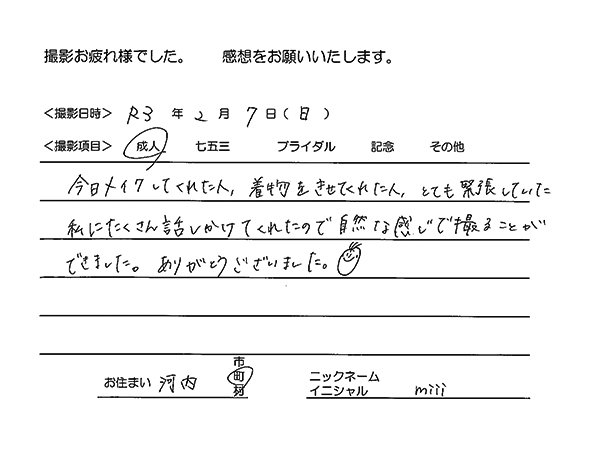 撮影お疲れ様でした。　感想をお願いいたします。
<撮影日時> R3 年 2 月 7 日(日)
<撮影項目> 成人 七五三 ブライダル 記念 その他
今日メイクしてくれた人，着物をきせてくれた人，とても緊張していた
私にたくさん話しかけてくれたので自然な感じで撮ることが
できました。ありがとうございました。
お住まい 河内 市 町 村
ニックネーム
イニシャル miii